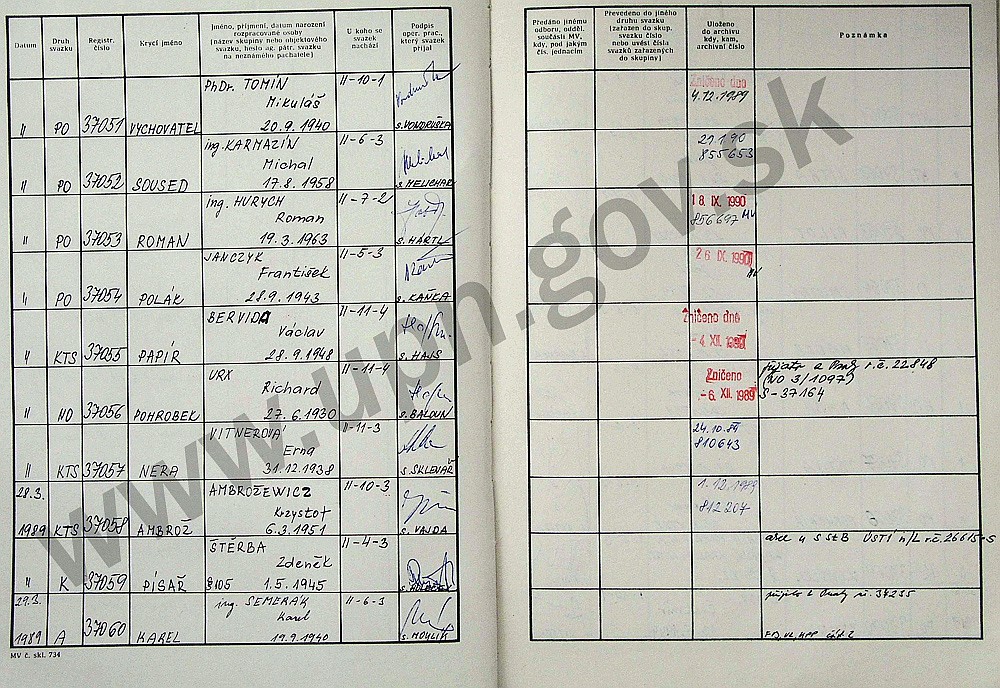 Datum
Druh svazku
Registr. číslo
Krycí jméno
Jméno, příjmení, datum narození
rozpracované osoby
(název skupiny nebo objektového
svazku, heslo ag. pátr. svazku
na neznámého pachatele)
U koho se
svazek
nachází
Podpis
oper. prac.,
který svazek
přijal
Předáno jinému
odboru, odděl.
součásti MV,
kdy, pod jakým
čís. jednacím
Převedeno do jiného
druhu svazku
(zařazen do skup.
svazku číslo
nebo uvést čísla
svazků zařazených
do skupiny)
Uloženo
do archivu
kdy, kam,
archivní číslo
Poznámka
PhDr. TOMÍN II-10-1 Zničeno dne
Mikuláš 4.12.1989
" PO 37051 VYCHOVATEL 20.9.1940 s. VONDRUŠKA
ing. KARMAZÍN II-6-3
Michal 855653
" PO 37052 SOUSED 17.8.1958 s. MELICHAR
ing. HURYCH II-7-2 18. IX. 1990
Roman 856697 MV
" PO 37053 ROMAN 19.3.1963 s. HARTL
JANCZYK II-5-3 26. IX. 1990
František
" PO 37054 POLÁK 28.9.1943 s. KAŇKA
BERVIDA II-11-4 Zničeno dne
Václav -4. XII. 1989
" KTS 37055 PAPÍR 28.9.1948 s. HAJS
URX II-11-4 Zničeno r.č. 22848
Richard -6. XII. 1989 (NO 3/1097)
" NO 37056 POHROBEK 27.6.1930 s. BALOUN S-37164
VITNEROVÁ II-11-3 24.10.89
Erna 810643
" KTS 37057 NERA 31.12.1938 s. SKLENÁŘ
28.3. AMBROŽEWICZ II-10-3 1.12.1989
Krzystof 812207
1989 KTS 37058 AMBROŽ 6.3.1951 s. VAJDA
ŠTĚRBA II-4-3 S StB ÚSTÍ n/L r.č. 26615
Zdeněk
" K 37059 PÍSAŘ §105 1.5.1945
29.3. ing. SEMERÁK II-6-3
Karel
1989 A 37060 KAREL 19.9.1940 s. MOULIK
MV č. skl. 734
www.upn.gov.sk